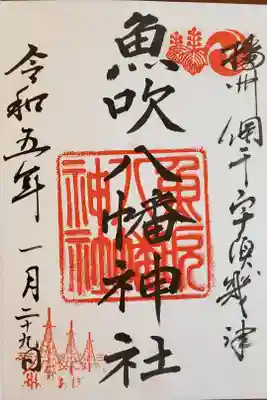 播州 網干宇須幾津
魚吹八幡神社
魚吹八幡神社
令和五年 一月二十九日